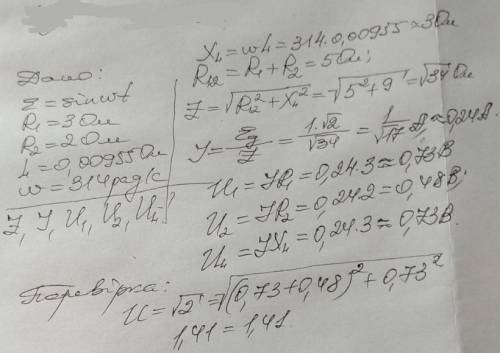 Дано:
ε = sinωt
R₁ = 3 Ом
R₂ = 2 Ом
L = 0,00955 Ом
ω = 314 рад/с
Z, I, U₁, U₂, U_L
X_L = ωL = 314·0,00955 ≈ 3 Ом
R₁₂ = R₁ + R₂ = 5 Ом;
Z = √(R₁₂² + X_L²) = √(5² + 9) = √34 Ом
I = ε_g/Z = 1·√2/√34 = 1/√17 A ≈ 0,24 A.
U₁ = IR₁ = 0,24·3 ≈ 0,73 В
U₂ = IR₂ = 0,24·2 = 0,48 В;
U_L = IX_L = 0,24·3 ≈ 0,73 В.
Перевірка:
U = √2 = √((0,73 + 0,48)² + 0,73²)
1,41 = 1,41.